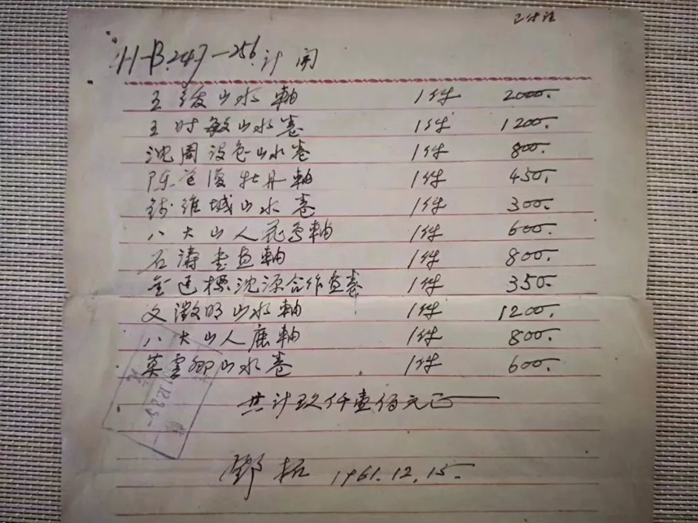 H-B.247-256 计开
王紱山水軸 1件 2000.
王时敏山水卷 1件 1200.
沈周设色山水卷 1件 800.
陈道復牡丹軸 1件 450.
钱维城山水卷 1件 300.
八大山人花鸟軸 1件 600.
石涛画軸 1件 800.
金廷標沈源合作画卷 1件 350.
文徵明山水軸 1件 1200.
八大山人鹿軸 1件 800.
莫雲卿山水卷 1件 600.
共计玖仟壹佰元正
鄧拓 1961.12.15.